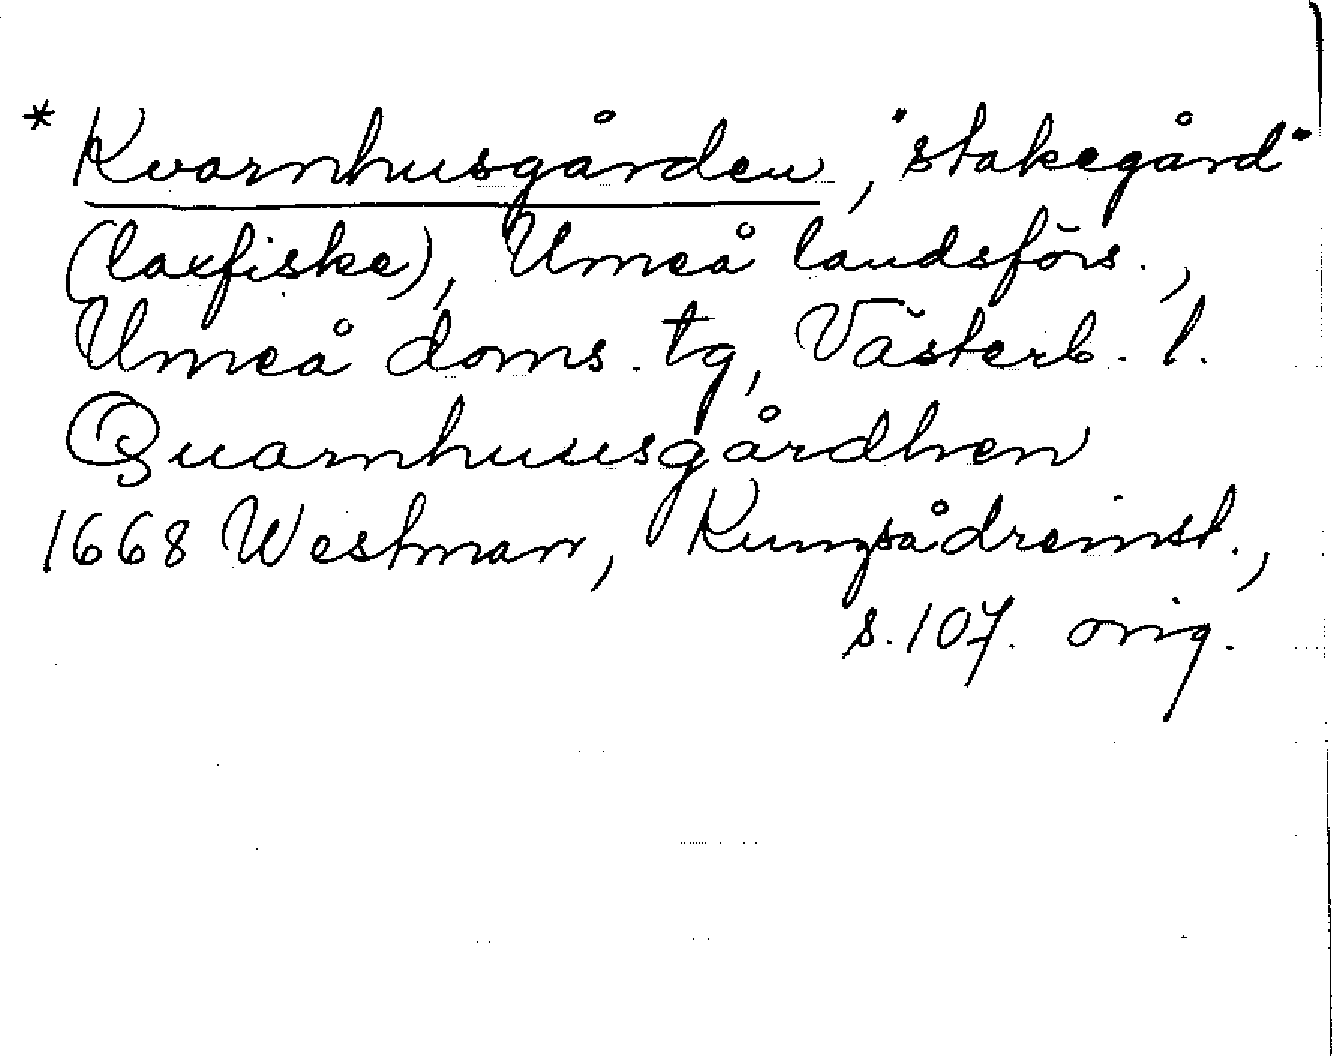 * Kvarnhusgården, "stakegård"
(laxfiske), Umeå landsförs.,
Umeå doms. tg, Västerb. l.
Quarnhuusgårdhen
1668 Westman, Kungsådreinst.,
s. 107. orig.